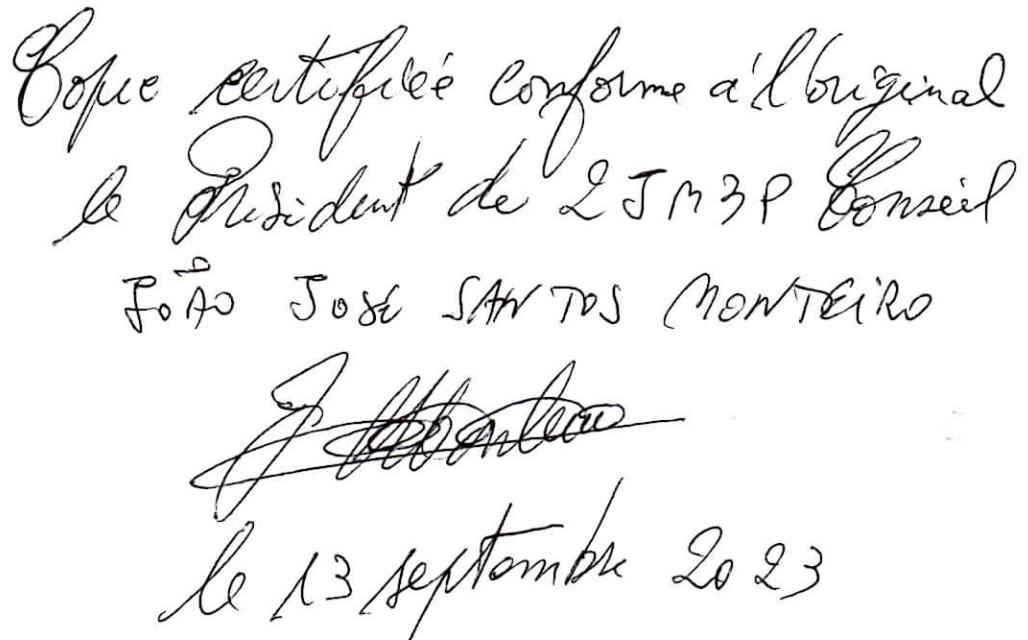 Copie certifiée conforme à l'original
le Président de 2JM3P Conseil
JOÃO JOSÉ SANTOS MONTEIRO
le 13 septembre 2023